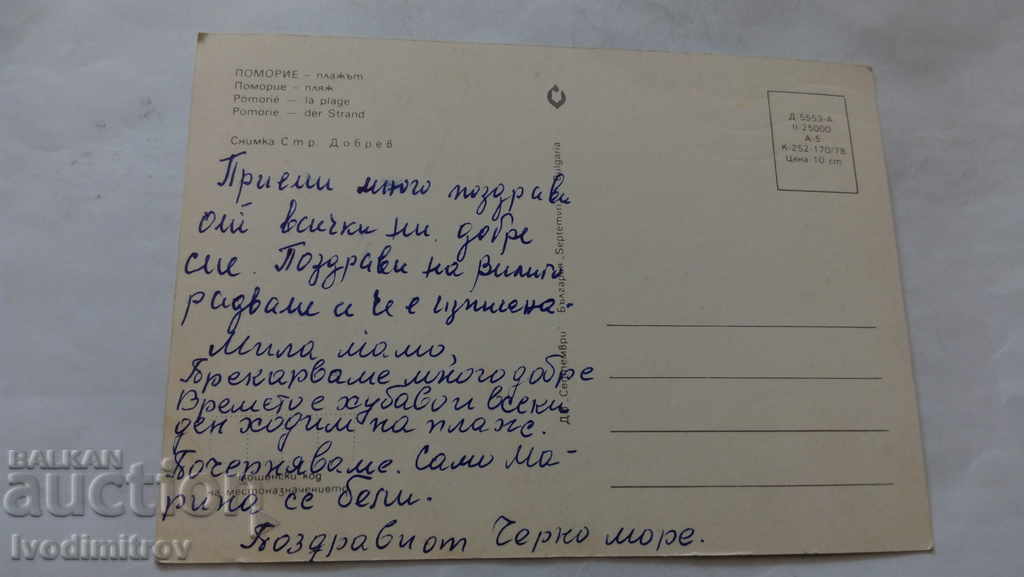 ПОМОРИЕ – плажът
Поморие – пляж
Pomorié — la plage
Pomorie — der Strand
Снимка Стр. Добрев
Д-5553-А
II-25000
А-5
К-252-170/78
Цена 10 ст
Приеми много поздрави
от всички ни. добре
сме. Поздрави на Вилито
радваме се че е изписена.
Мила мамо,
Прекарваме много добре
Времето е хубаво и всеки
ден ходим на плаж.
Почерняваме. Само Ма-
рина се бели.
Поздрави от Черно море.
ДП Септември България „Septemvri" Bulgaria
пощенски код
на местоназначението
BALKAN
auction
Ivodimitrov